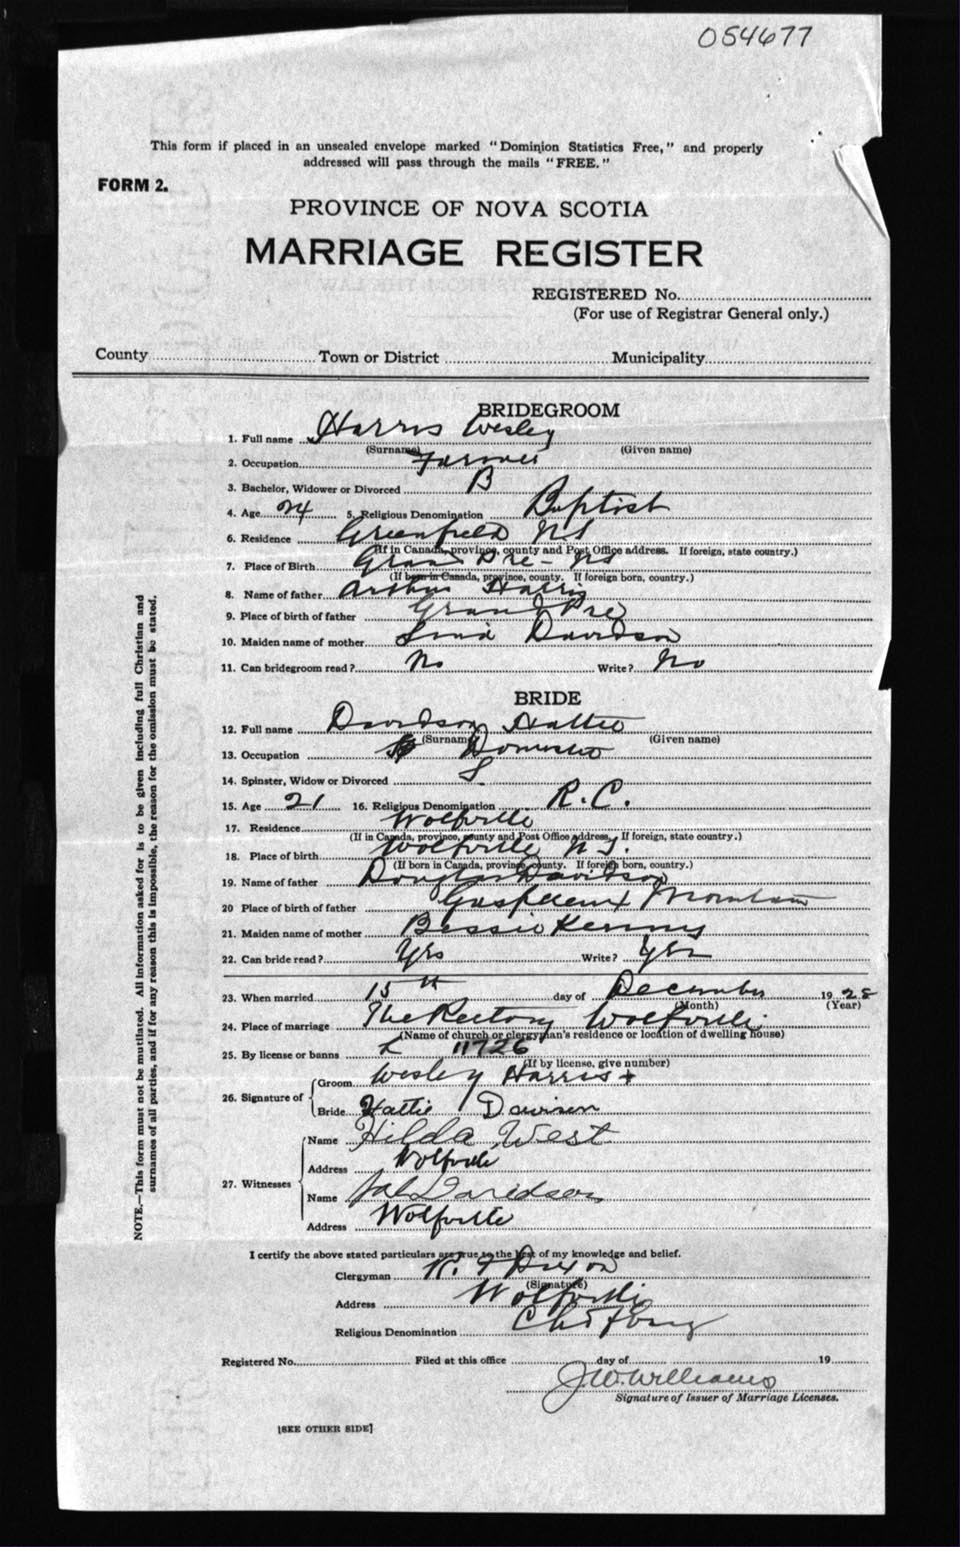 054677
This form if placed in an unsealed envelope marked "Dominion Statistics Free," and properly
addressed will pass through the mails "FREE."
FORM 2.
PROVINCE OF NOVA SCOTIA
MARRIAGE REGISTER
REGISTERED No.
(For use of Registrar General only.)
County Town or District Municipality
BRIDEGROOM
1. Full name Harris Wesley
(Surname) (Given name)
2. Occupation Farmer
3. Bachelor, Widower or Divorced B
4. Age 24 5. Religious Denomination Baptist
6. Residence Greenfield NS
(If in Canada, province, county and Post Office address. If foreign, state country.)
7. Place of Birth Grand Pre - NS
(If born in Canada, province, county. If foreign born, country.)
8. Name of father Arthur Harris
9. Place of birth of father Grand Pre
10. Maiden name of mother Davidson
11. Can bridegroom read? No Write? No
BRIDE
12. Full name Davidson Hattie
(Surname) (Given name)
13. Occupation Domestic
14. Spinster, Widow or Divorced S
15. Age 21 16. Religious Denomination R.C.
17. Residence Wolfville
(If in Canada, province, county and Post Office address. If foreign, state country.)
18. Place of birth Wolfville N.S.
(If born in Canada, province, county. If foreign born, country.)
19. Name of father Douglas Davidson
20 Place of birth of father Gaspereaux Mountain
21. Maiden name of mother Bessie Kenny
22. Can bride read? Yes Write? Yes
23. When married 15th day of December 1928
(Month) (Year)
24. Place of marriage The Rectory Wolfville
(Name of church or clergyman's residence or location of dwelling house)
25. By license or banns L 11726
(If by license, give number)
26. Signature of
Groom Wesley Harris +
Bride Hattie Davison
27. Witnesses
Name Hilda West
Address Wolfville
Name Davidson
Address Wolfville
I certify the above stated particulars are true to the best of my knowledge and belief.
Clergyman R. F Dixon
(Signature)
Address Wolfville
Religious Denomination Ch of Eng
Registered No. Filed at this office day of 19
J.W. Williams
Signature of Issuer of Marriage Licenses.
[SEE OTHER SIDE]
NOTE.—This form must not be mutilated. All information asked for is to be given including full Christian and
surnames of all parties, and if for any reason this is impossible, the reason for the omission must be stated.